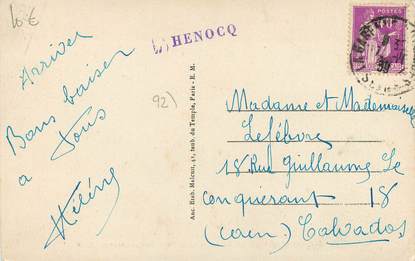 10 €
L. HENOCQ
Arriver
Bons baiser
a Tous
Hélène
92)
Anc. Etab. Malcuit, 41, faub. du Temple, Paris - E. M.
POSTES
Madame et Mademoiselle
Lefébvre
18 Rue Guillaume le
Conquérant 18
(Caen) Calvados